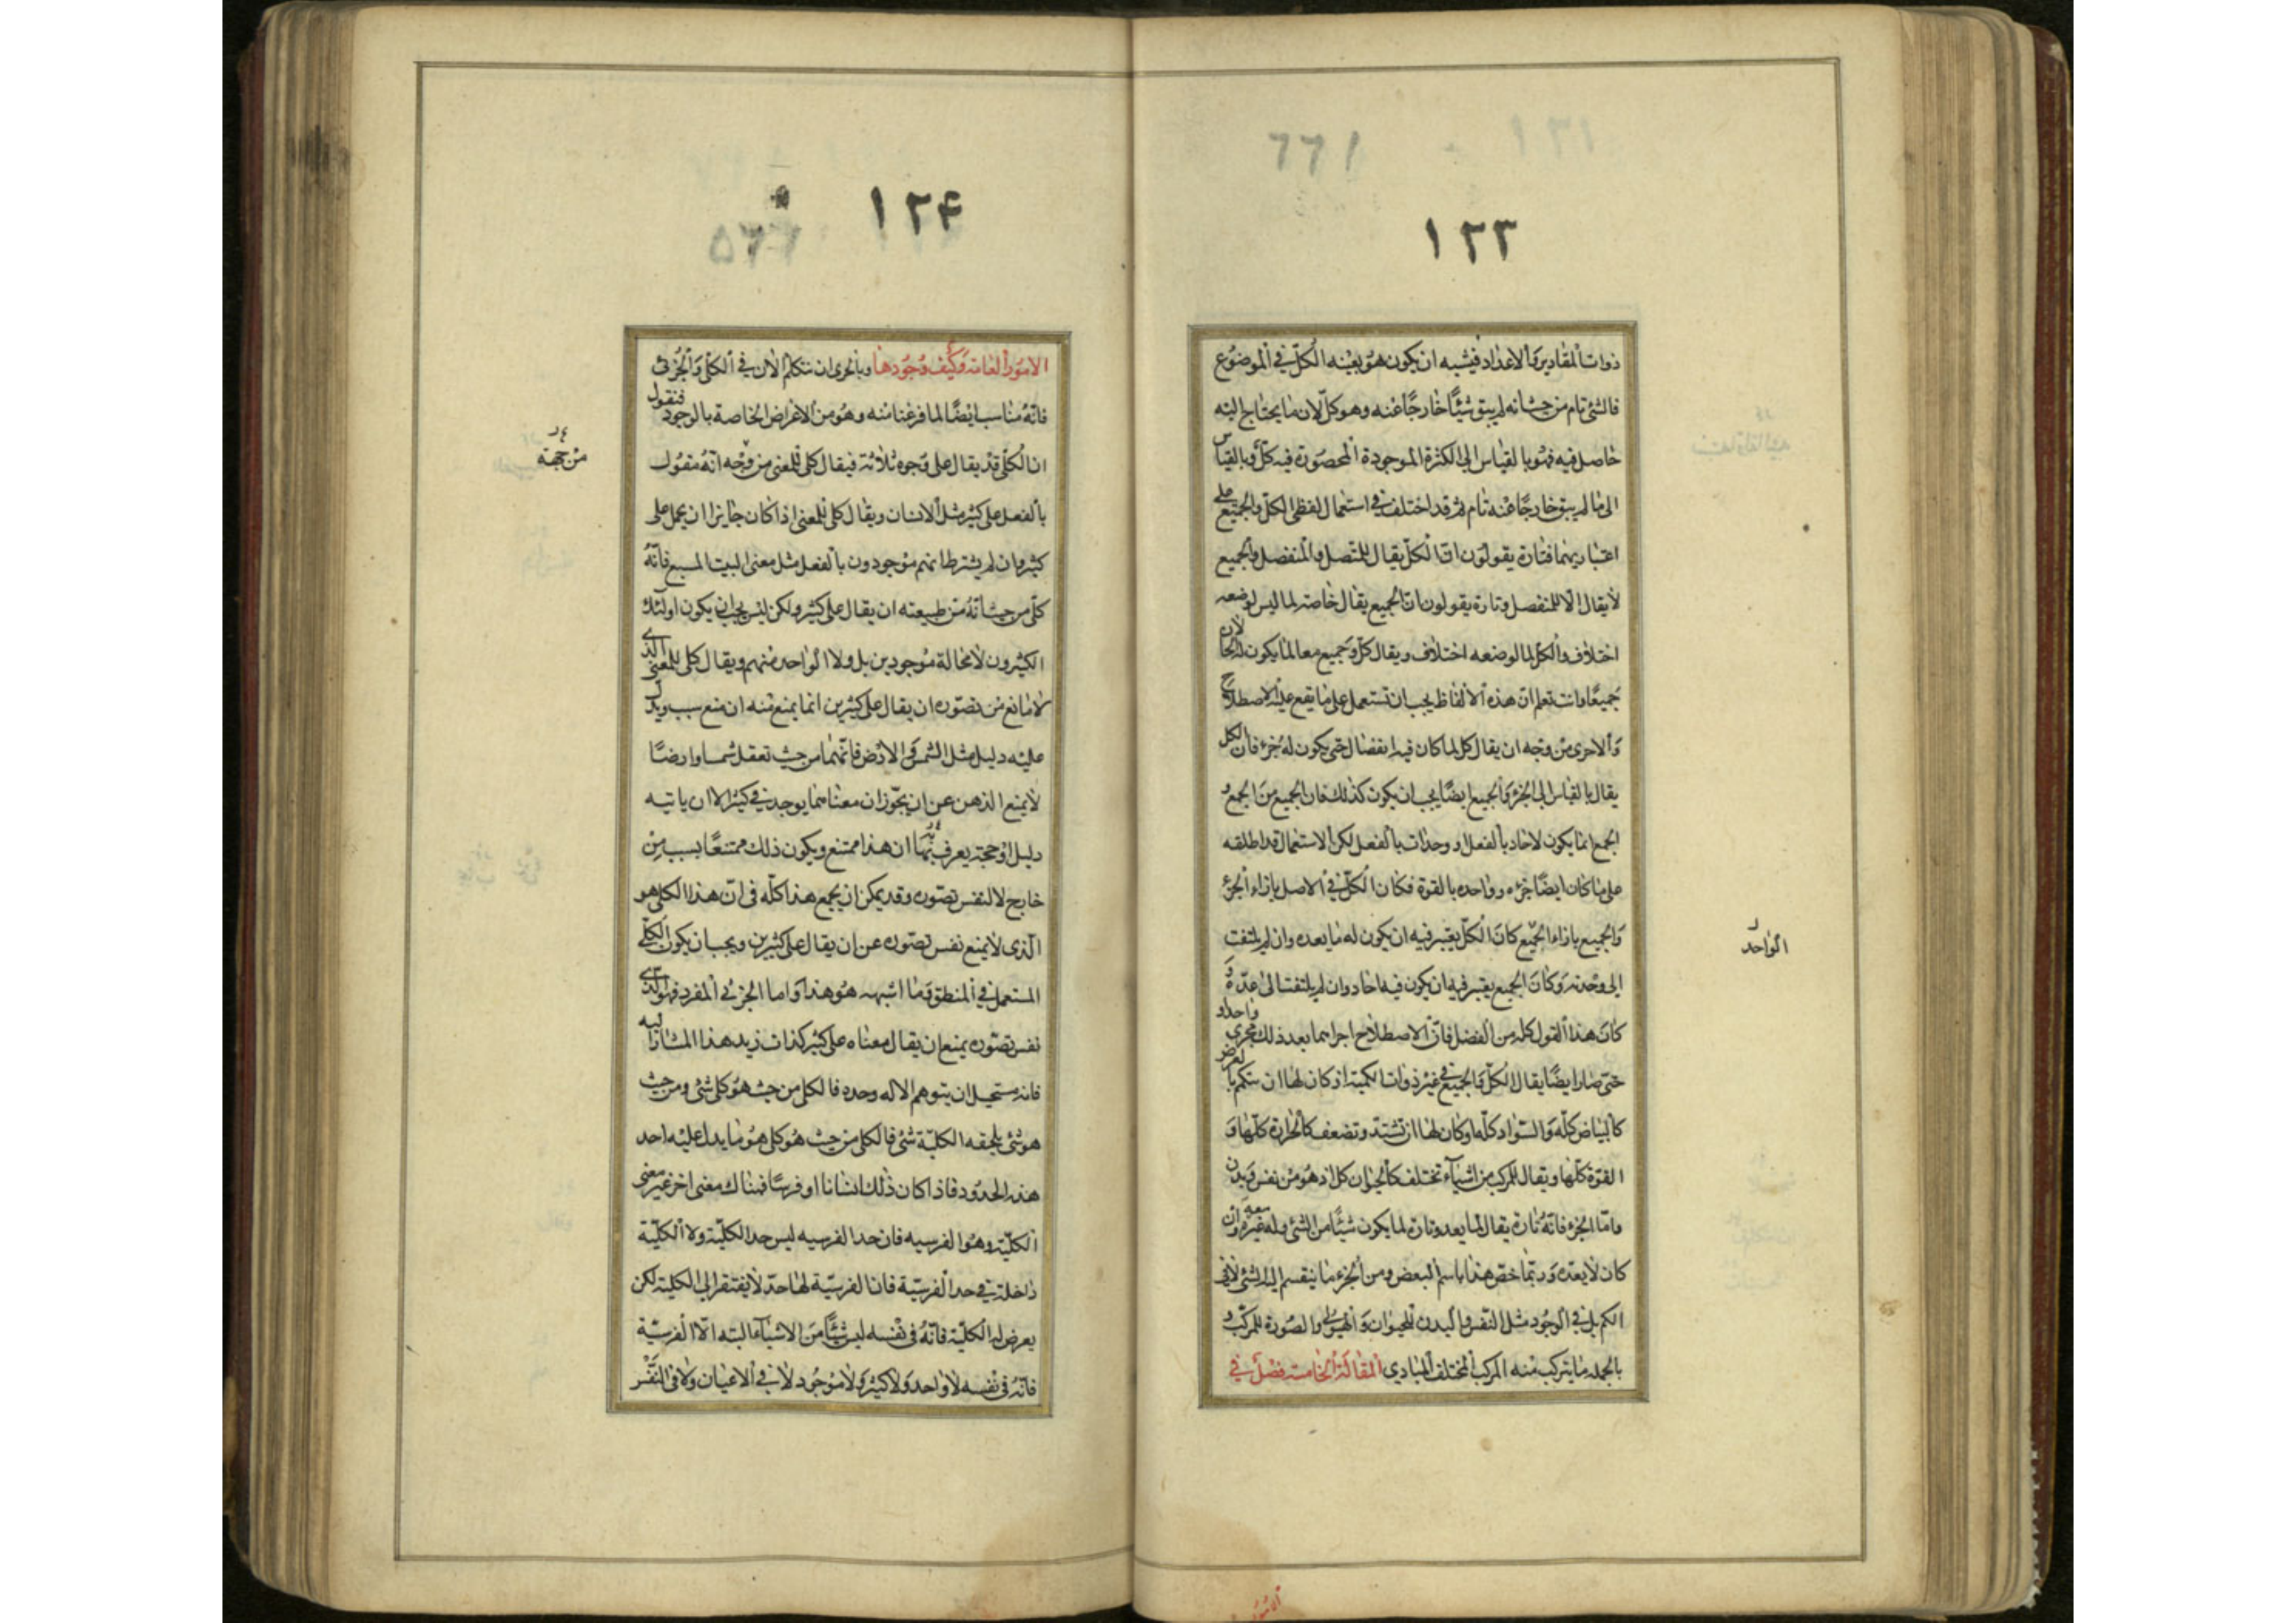 ١٢٣
ذوات المقادير والاعداد فيشبه ان يكون هو بعينه الكل في الموضوع
فالشئ تام من حيث انه لم يبق شيئا خارجا عنه وهو كل لان ما يحتاج اليه
حاصل فيه فهو بالقياس الى الكثرة الموجودة المحصورة فيه كل وبالقياس
الى ما لم يبق خارجا عنه تام ثم قد اختلف في استعمال لفظي الكل والجميع على
اعتباريهما فتارة يقولون ان الكل يقال للمتصل والمنفصل والجميع
لا يقال الا للمنفصل وتارة يقولون ان الجميع يقال خاصة لما ليس لوضعه
اختلاف والكل لما لوضعه اختلاف ويقال كل وجميع معا لما يكون له الحالان
جميعا وانت تعلم ان هذه الالفاظ يجب ان تستعمل على ما يقع عليه الاصطلاح
والاحرى من وجه ان يقال كل لما كان فيه انفصال حتى يكون له جزء فان الكل
يقال بالقياس الى الجزء والجميع ايضا يجب ان يكون كذلك فان الجميع من الجمع و
الجمع انما يكون لاحاد بالفعل او وحدات بالفعل لكن الاستعمال قد اطلقه
على ما كان ايضا جزءه وواحده بالقوة فكان الكل في الاصل بازاء الجزء
والجميع بازاء الجميع كان الكل يعتبر فيه ان يكون له ما يعده وان لم يلتفت
الواحد
الى وحدته وكان الجميع يعتبر فيه ان يكون فيه احاد وان لم يلتفت الى عدة و
كان هذا القول كله من الفضل فان الاصطلاح اجراهما بعد ذلك مجرى واحدا و
حتى صار ايضا يقال الكل والجميع في غير ذوات الكمية اذ كان لها ان تتكم بالعرض
كالبياض كله والسواد كله او كان لها ان تشتد وتضعف كالحرارة كلها و
القوة كلها ويقال للمركب من اشياء تختلف كالحيوان كل اذ هو من نفس وبدن
واما الجزء فانه تارة يقال لما يعد وتارة لما يكون شيئا من الشئ وله غيره معه وان
كان لا يعده وربما خص هذا باسم البعض ومن الجزء ما ينقسم اليه الشئ لا في
الكم بل في الوجود مثل النفس والبدن للحيوان والهيولى والصورة للمركب و
بالجملة ما يتركب منه المركب المختلف المبادي المقالة الخامسة فصل في
١٢٤
الامور العامة وكيف وجودها وبالحرى ان نتكلم الان في الكلى والجزئى
فانه مناسب ايضا لما فرغنا منه وهو من الاغراض الخاصة بالوجود فنقول
ان الكلى قد يقال على وجوه ثلاثة فيقال كلى للمعنى من وجه انه مقول
من جهة
بالفعل على كثير مثل الانسان ويقال كلى للمعنى اذا كان جايزا ان يحمل على
كثير وان لم يشترط انهم موجودون بالفعل مثل معنى البيت المسبع فانه
كلى من حيث انه من طبيعته ان يقال على كثير ولكن ليس يجب ان يكون اولئك
الكثيرون لا محالة موجودين بل ولا الواحد منهم ويقال كلى للمعنى الذى
لا مانع من تصوره ان يقال على كثيرين انما يمنع منه ان منع سبب ويدل
عليه دليل مثل الشمس والارض فانهما من حيث تعقل شمسا وارضا
لا يمنع الذهن عن ان يجوز ان معناهما يوجد في كثير الا ان ياتيه
دليل او حجة يعرف بها ان هذا ممتنع ويكون ذلك ممتنعا بسبب من
خارج لا لنفس تصوره وقد يمكن ان يجمع هذا كله فى ان هذا الكلى هو
الذى لا يمنع نفس تصوره عن ان يقال على كثيرين ويجب ان يكون الكلى
المستعمل في المنطق وما اشبهه هو هذا واما الجزئى المفرد فهو الذى
نفس تصوره يمنع ان يقال معناه على كثير كذات زيد هذا المشار اليه
فانه مستحيل ان يتوهم الا له وحده فالكلى من حيث هو كلى شئ ومن حيث
هو شئ يلحقه الكلية شئ فالكلى من حيث هو كلى هو ما يدل عليه احد
هذه الحدود فاذا كان ذلك انسانا او فرسا فهناك معنى اخر غير معنى
الكلية وهو الفرسيه فان حد الفرسيه ليس حد الكلية ولا الكلية
داخلة في حد الفرسية فان الفرسية لها حد لا يفتقر الى الكلية لكن
يعرض له الكلية فانه فى نفسه ليس شيئا من الاشياء البته الا الفرسية
فانه فى نفسه لا واحد ولا كثير ولا موجود لا في الاعيان ولا فى النفس